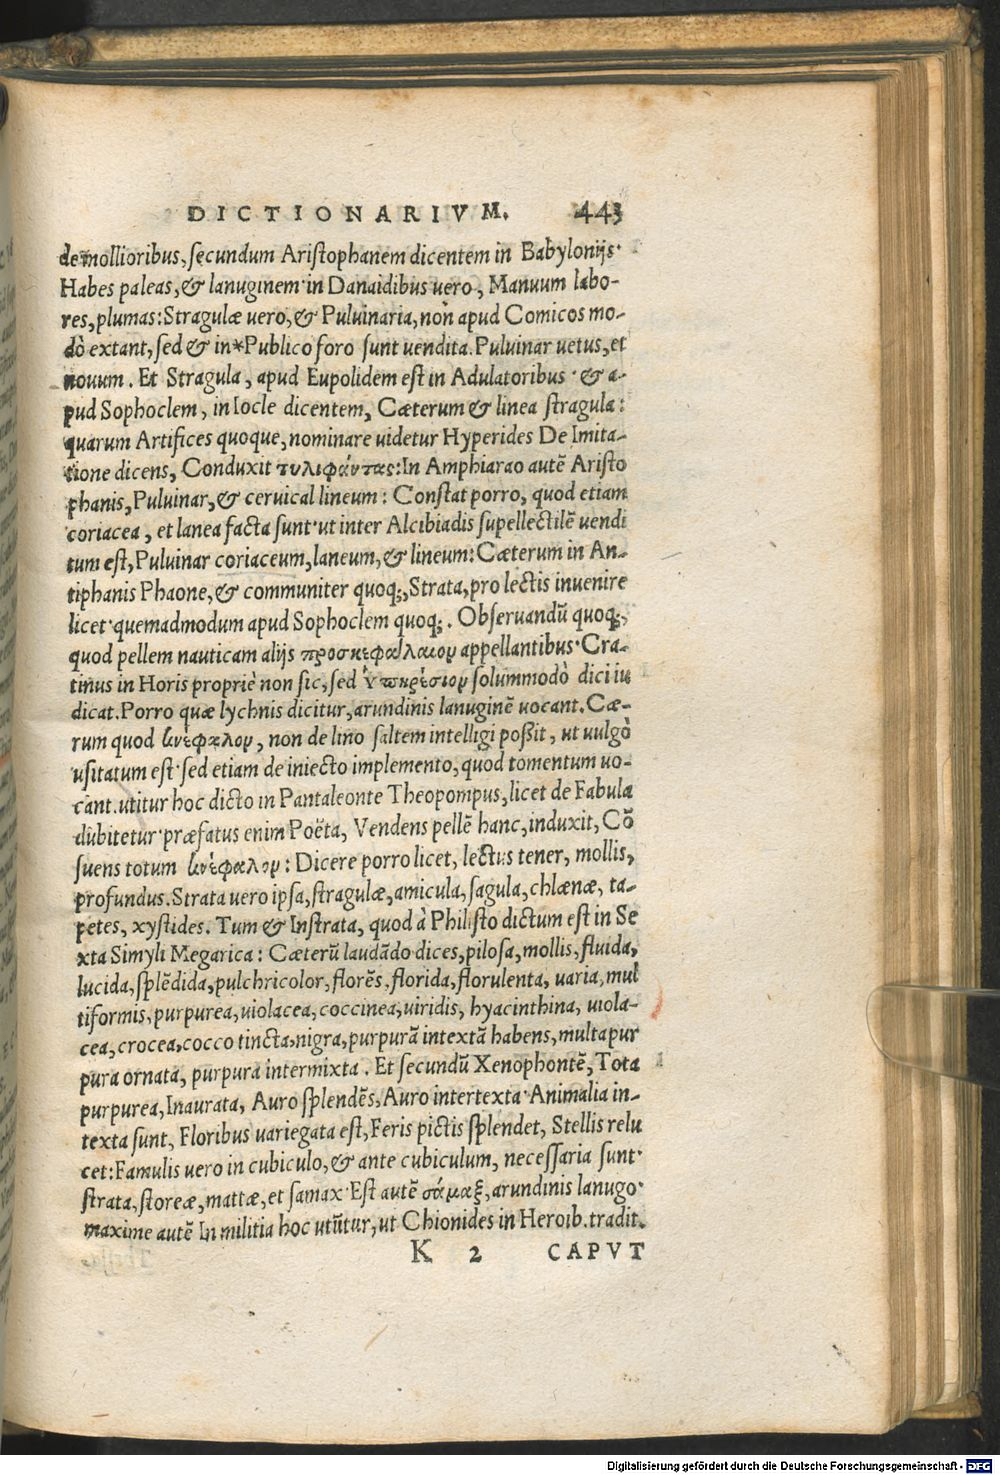 DICTIONARIVM. 443
de mollioribus, secundum Aristophanem dicentem in Babylonijs·
Habes paleas, & lanuginem· in Danaidibus uero, Manuum labo-
res, plumas: Stragulæ uero, & Puluinaria, non apud Comicos mo-
dò extant, sed & in*Publico foro sunt uendita. Puluinar uetus, et
nouum. Et Stragula, apud Eupolidem est in Adulatoribus· & a-
pud Sophoclem, in Iocle dicentem, Cæterum & linea stragula:
quarum Artifices quoque, nominare uidetur Hyperides De Imita-
tione dicens, Conduxit τυλιφάντας: In Amphiarao autē Aristo
phanis, Puluinar, & ceruical lineum: Constat porro, quod etiam
coriacea, et lanea facta sunt· ut inter Alcibiadis supellectilē uendi
tum est, Puluinar coriaceum, laneum, & lineum: Cæterum in An-
tiphanis Phaone, & communiter quoq;, Strata, pro lectis inuenire
licet· quemadmodum apud Sophoclem quoq;. Obseruandū quoq;,
quod pellem nauticam alijs προσκεφαλαιον appellantibus· Cra-
tinus in Horis propriè non sic, sed ὑπηρέσιον solummodò dici iu
dicat. Porro quæ lychnis dicitur, arundinis lanuginē uocant. Cæ-
rum quod κνέφαλον, non de lino saltem intelligi poßit, ut uulgò
usitatum est· sed etiam de iniecto implemento, quod tomentum uo-
cant. utitur hoc dicto in Pantaleonte Theopompus, licet de Fabula
dubitetur· præfatus enim Poëta, Vendens pellē hanc, induxit, Cō
suens totum κνέφαλον: Dicere porro licet, lectus tener, mollis,
profundus. Strata uero ipsa, stragulæ, amicula, sagula, chlænæ, ta-
petes, xystides. Tum & Instrata, quod à Philisto dictum est in Se
xta Simyli Megarica: Cæterū laudādo dices, pilosa, mollis, fluida,
lucida, splēdida, pulchricolor, florēs, florida, florulenta, uaria, mul
tiformis, purpurea, uiolacea, coccinea, uiridis, hyacinthina, uiola-
cea, crocea, cocco tincta, nigra, purpurā intextā habens, multa pur
pura ornata, purpura intermixta. Et secundū Xenophontē, Tota
purpurea, Inaurata, Auro splendēs, Auro intertexta· Animalia in-
texta sunt, Floribus uariegata est, Feris pictis splendet, Stellis relu
cet: Famulis uero in cubiculo, & ante cubiculum, necessaria sunt·
strata, storeæ, mattæ, et samax· Est autē σάμαξ, arundinis lanugo·
maxime autē In militia hoc utūtur, ut Chionides in Heroib. tradit.
K 2 CAPVT
Digitalisierung gefördert durch die Deutsche Forschungsgemeinschaft - DFG